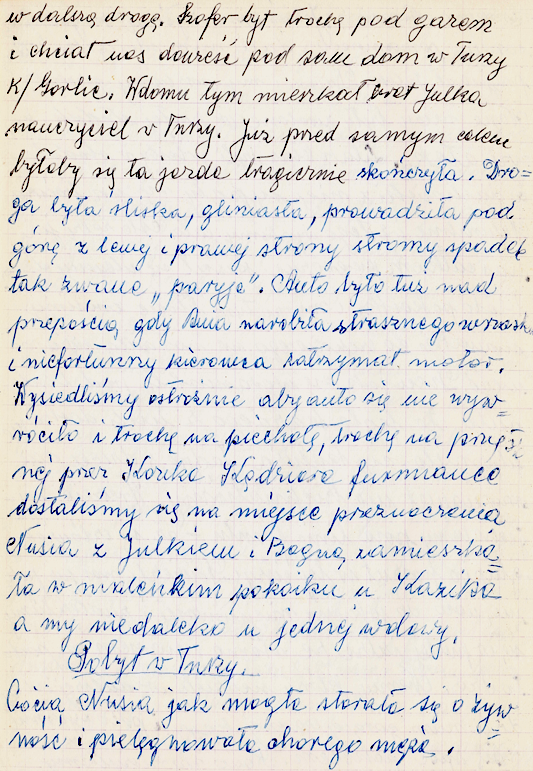 w dalszą drogę. Szofer był trochę pod gazem
i chciał nas dowieść pod sam dom w Turzy
k/Gorlic. W domu tym mieszkał brat Julka
nauczyciel w Turzy. Już przed samym celem
byłaby się ta jazda tragicznie skończyła. Dro=
ga była śliska, gliniasta, prowadziła pod
górę z lewej i prawej strony stromy spadek
tak zwane „paryje". Auto było tuż nad
przepością gdy Ania narobiła strasznego wrzasku
i niefortunny kierowca zatrzymał motor.
Wysiedliśmy ostrożnie aby auto się nie wyw=
róciło i trochę na piechotę, trochę na przysła
nej przez Kazika Kędziora furmance
dostaliśmy się na miejsce przeznaczenia
Nusia z Julkiem i Bogną zamieszka=
ła w maleńkim pokoiku u Kazika
a my niedaleko u jednej wdowy.
Pobyt w Turzy.
Ciocia Nusia jak mogła starała się o żyw=
ność i pielęgnowała chorego męża.